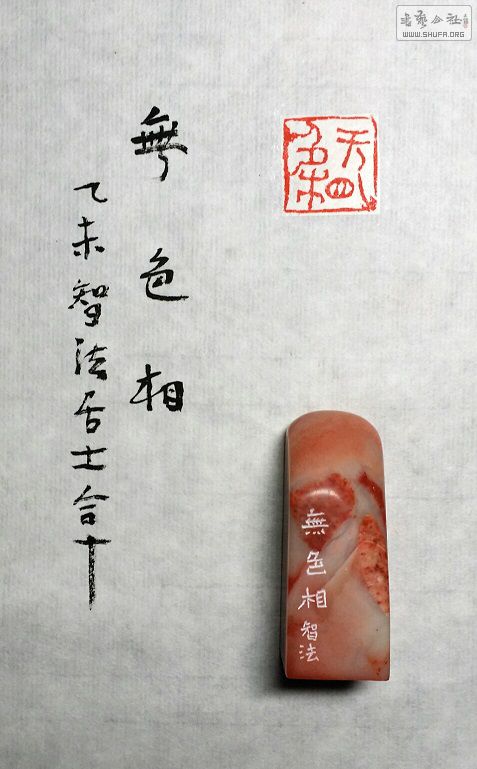 無色相
乙未智法居士合十
無色相
智法
書藝公社
WWW.SHUFA.ORG